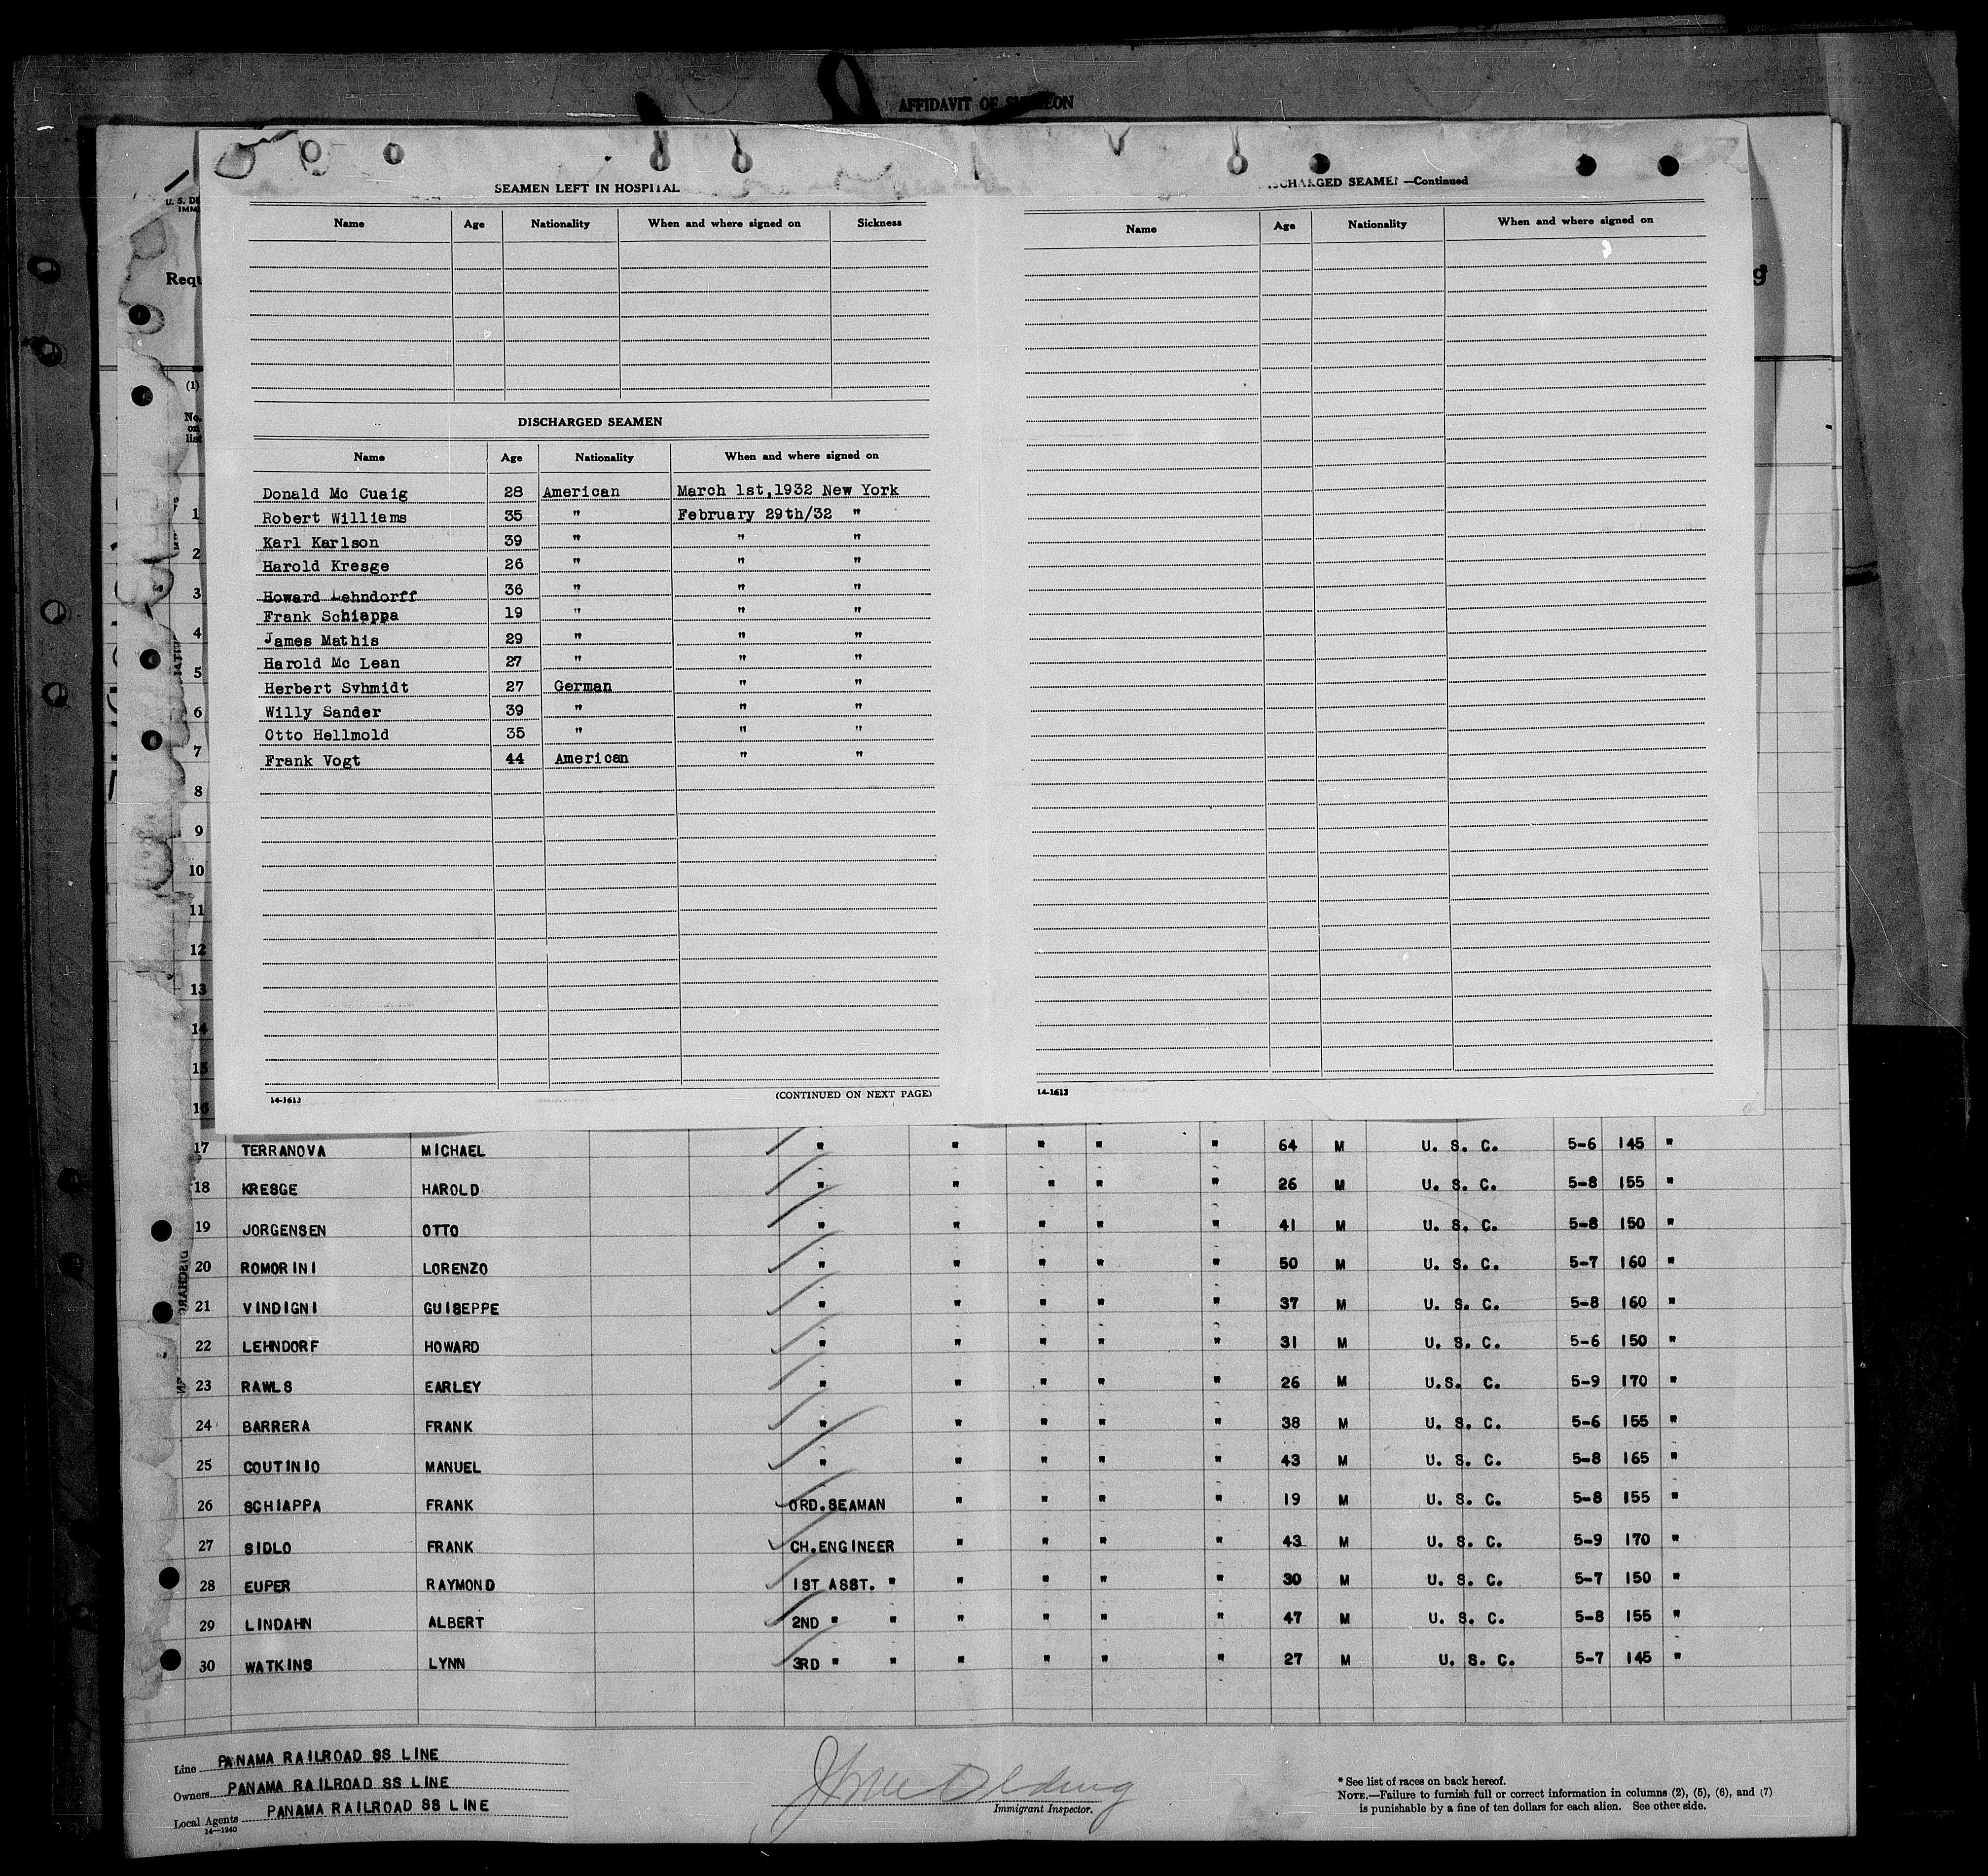 AFFIDAVIT OF
SEAMEN LEFT IN HOSPITAL
Name Age Nationality When and where signed on Sickness
DISCHARGED SEAMEN
Name Age Nationality When and where signed on
Donald Mc Cuaig 28 American March 1st,1932 New York
Robert Williams 35 " February 29th/32 "
Karl Karlson 39 " " "
Harold Kresge 26 " " "
Howard Lehndorff 36 " " "
Frank Schiappa 19 " " "
James Mathis 29 " " "
Harold Mc Lean 27 " " "
Herbert Svhmidt 27 German " "
Willy Sander 39 " " "
Otto Hellmold 35 " " "
Frank Vogt 44 American " "
14-1613 (CONTINUED ON NEXT PAGE)
SCHARGED SEAMEN —Continued
Name Age Nationality When and where signed on
14-1613
U. S. DE
IMM
Requ
g
(1)
No.
on
list
1
2
3
4
5
6
7
8
9
10
11
12
13
14
15
16
17 TERRANOVA MICHAEL " " " " " 64 M U. S. C. 5-6 145 "
18 KRESGE HAROLD " " " " " 26 M U. S. C. 5-8 155 "
19 JORGENSEN OTTO " " " " " 41 M U. S. C. 5-8 150 "
20 ROMORINI LORENZO " " " " " 50 M U. S. C. 5-7 160 "
21 VINDIGNI GUISEPPE " " " " " 37 M U. S. C. 5-8 160 "
22 LEHNDORF HOWARD " " " " " 31 M U. S. C. 5-6 150 "
23 RAWLS EARLEY " " " " " 26 M U.S. C. 5-9 170 "
24 BARRERA FRANK " " " " " 38 M U. S. C. 5-6 155 "
25 COUTINIO MANUEL " " " " " 43 M U. S. C. 5-8 165 "
26 SCHIAPPA FRANK ORD.SEAMAN " " " " 19 M U. S. C. 5-8 155 "
27 SIDLO FRANK CH.ENGINEER " " " " 43 M U. S. C. 5-9 170 "
28 EUPER RAYMOND 1ST ASST. " " " " " 30 M U. S. C. 5-7 150 "
29 LINDAHN ALBERT 2ND " " " " " " 47 M U. S. C. 5-8 155 "
30 WATKINS LYNN 3RD " " " " " " 27 M U. S. C. 5-7 145 "
Line PANAMA RAILROAD SS LINE
Owners PANAMA RAILROAD SS LINE
Local Agents PANAMA RAILROAD SS LINE
14—1240
Immigrant Inspector.
* See list of races on back hereof.
NOTE.—Failure to furnish full or correct information in columns (2), (5), (6), and (7)
is punishable by a fine of ten dollars for each alien. See other side.